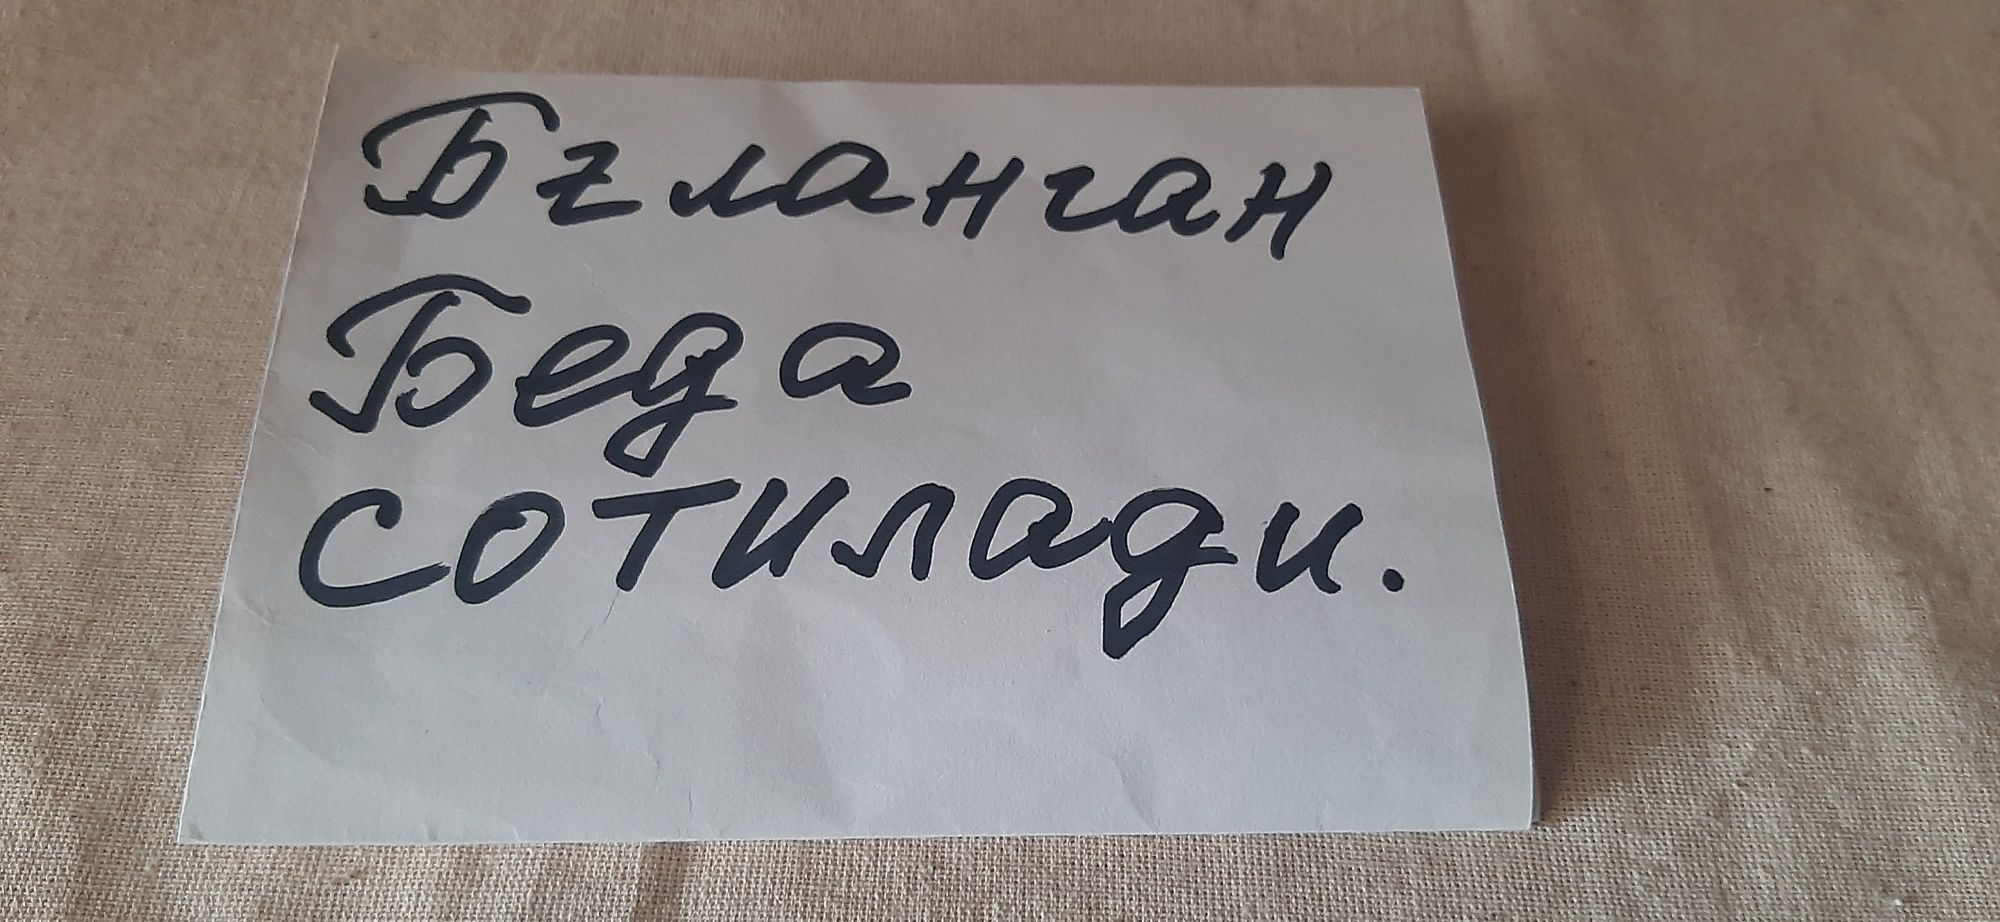 Бғланган
Беда
сотилади.